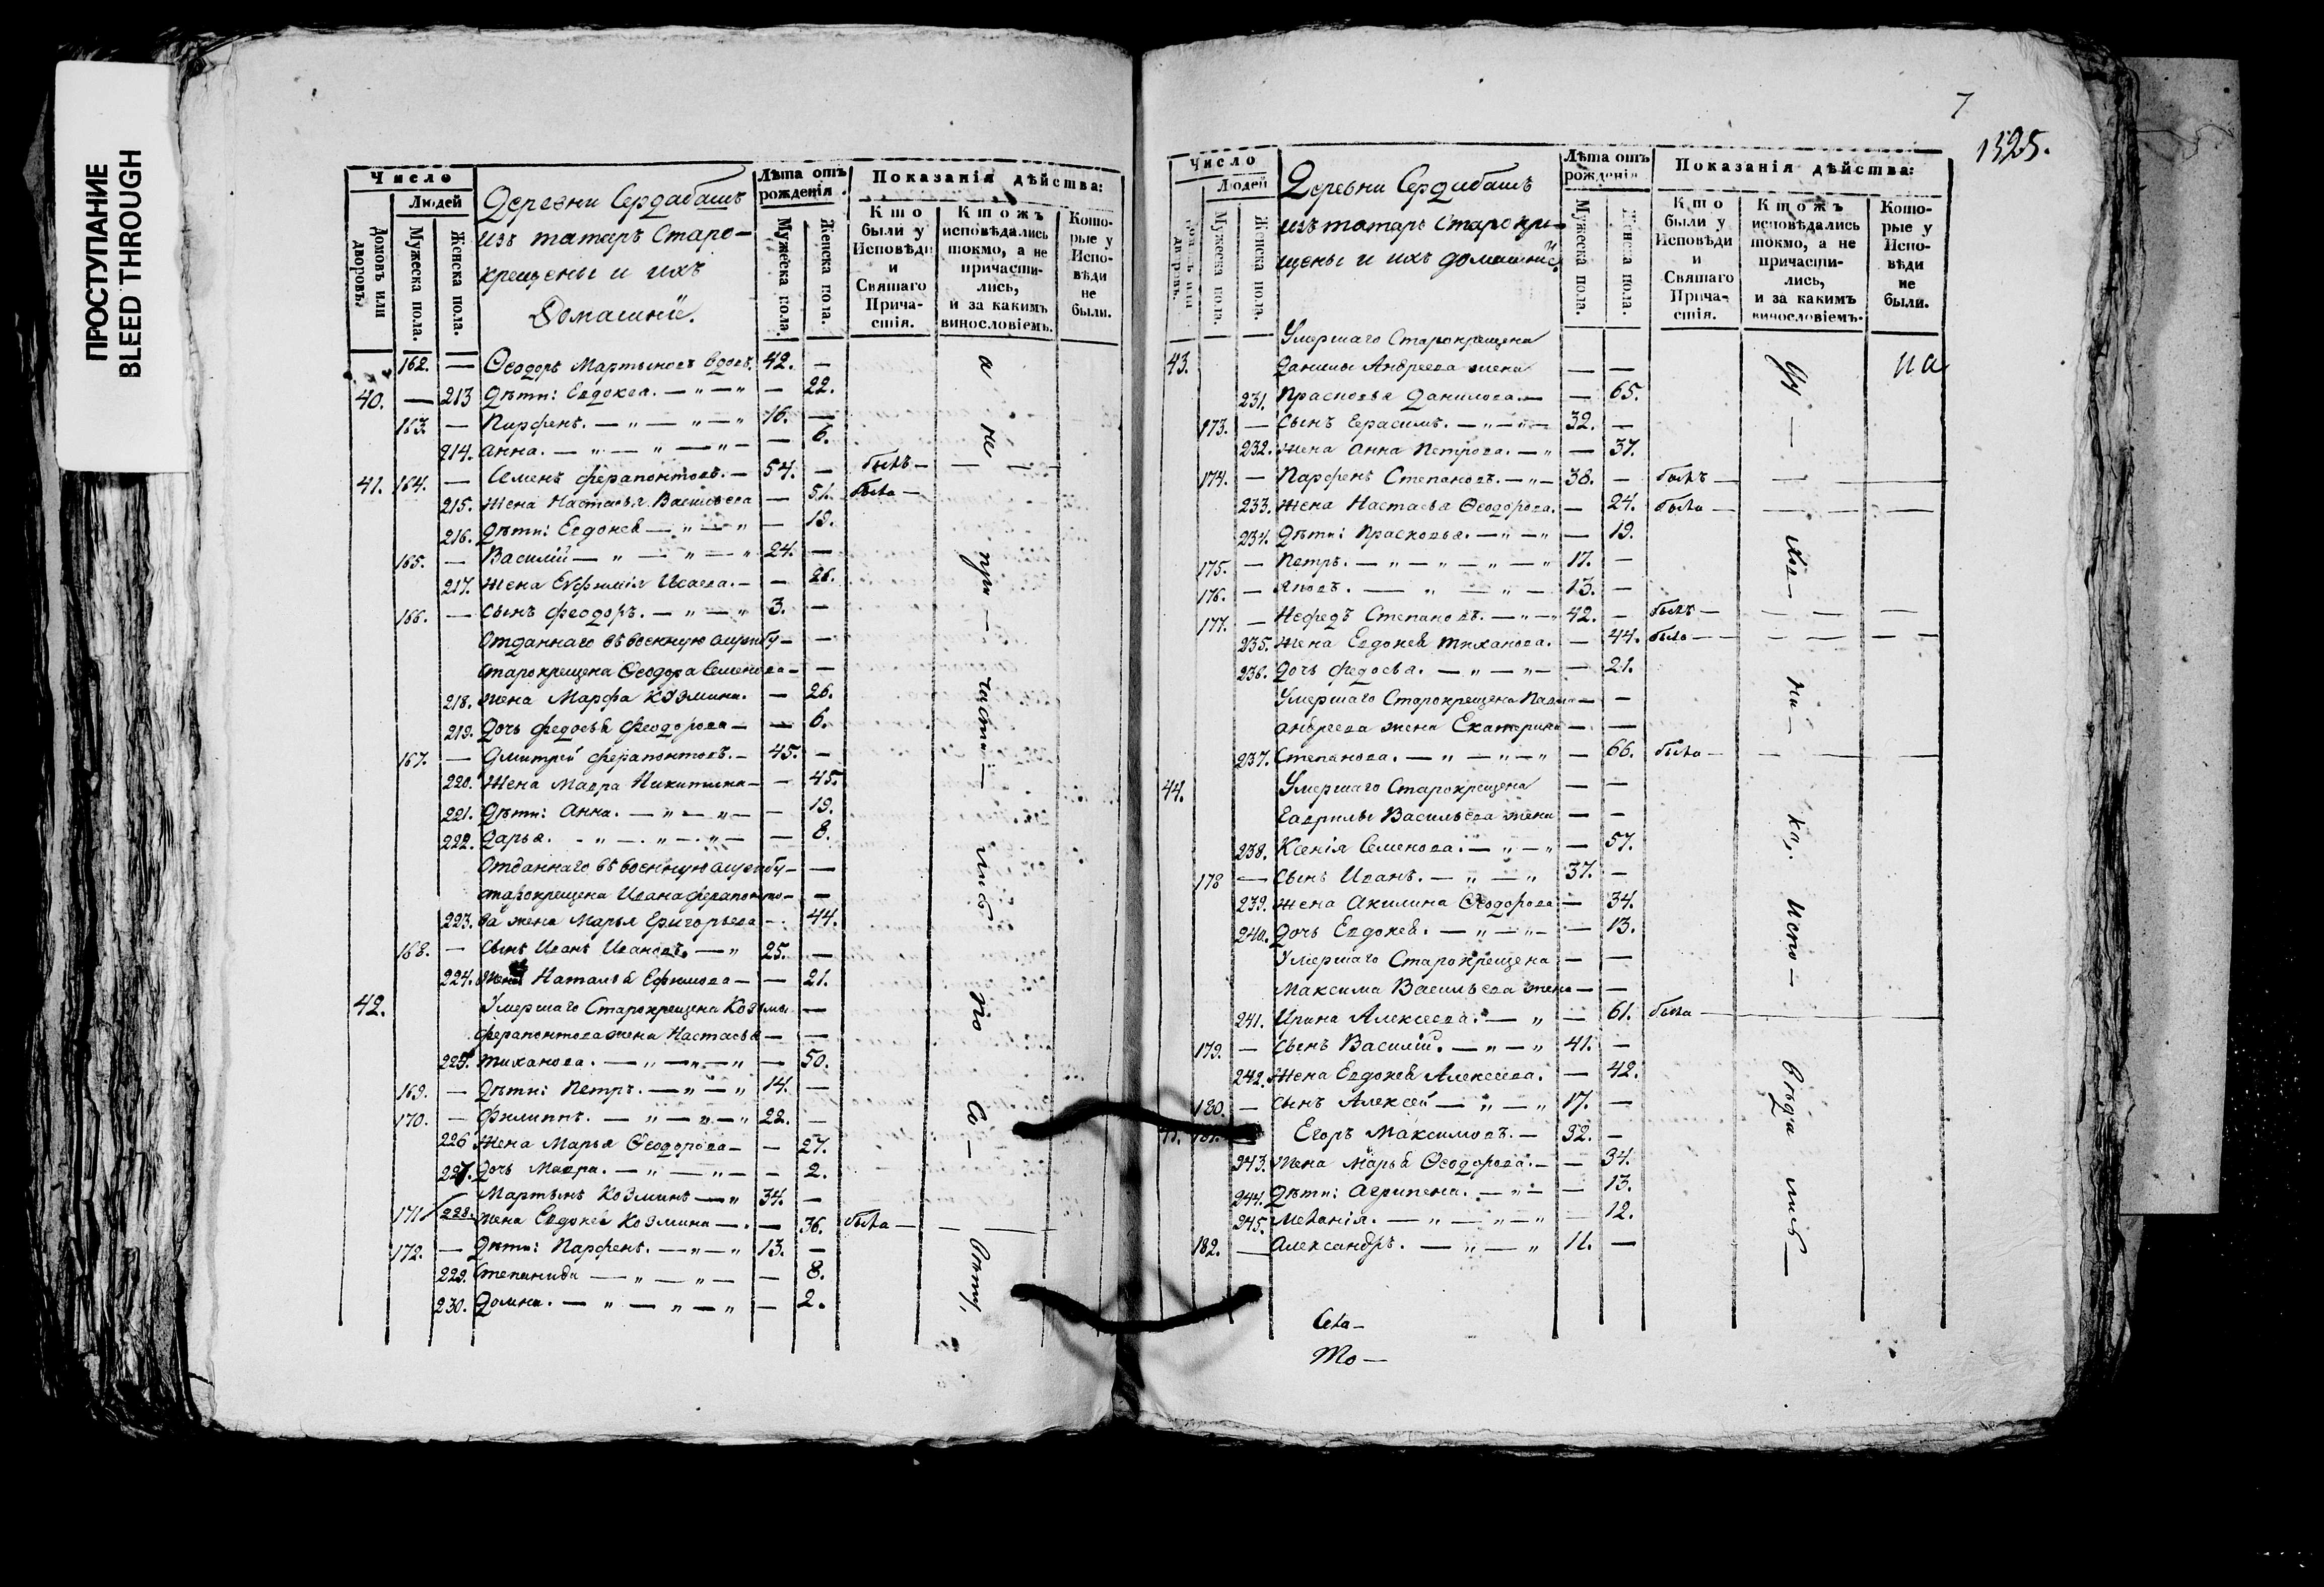 ПРОСТУПАНИЕ
BLEED THROUGH
Число
Людей
Домовъ или дворовъ.
Мужеска пола.
Женска пола.
Деревни Сердабашъ
изъ татаръ Старо-
крещены и ихъ
Домашнiи.
Лѣта отъ рожденiя.
Мужеска пола.
Женска пола.
Показанiя дѣйства:
Кто были у Исповѣди и Святаго Прича-стiя.
Ктожъ исповѣдались токмо, а не причасти-лись, и за какимъ винословiемъ.
Кото-рые у Испо-вѣди не были.
162. — Ѳеодоръ Мартыновъ вдовъ. 42. —
40. — 213 Дѣти: Евдокея. — „ — „ — 22.
163. — Парфенъ. — „ — „ — „ 16. —
214. Анна. — „ — „ — „ — 6.
41. 164. — Семенъ Ферапонтовъ. — 54. — былъ —
215. Жена Настасья Васильева — 51. была —
216. Дѣти: Евдокея — „ — „ — 19.
165. — Василiй — „ — „ — „ 24. —
217. Жена Евфимiя Исаева. — — 26.
166. — Сынъ Феодоръ. — „ — „ 3. —
Отданнаго въ военную службу — —
Старокрещена Ѳеодора Семенова — —
218. Жена Марфа Козмина. — 26.
219. Дочь Федосья Феодорова — — 6.
167. — Дмитрей Ферапонтовъ. — 45. —
220. Жена Мавра Никитина — — 45.
221. Дѣти: Анна. — „ — „ — — 19.
222. Дарья. — „ — „ — „ — — 8.
Отданнаго въ военную службу — —
старокрещена Ивана Ферапонто — —
223. ва жена Марья Григорьева — 44.
168. — Сынъ Иванъ Ивановъ. — „ 25. —
224. Жена Наталья Ефимова — — 21.
42. Умершаго Старокрещена Козмы —
Ферапонтова жена Настасья — —
225. Тиханова. — „ — „ — „ — 50.
169. — Дѣти: Петръ. — „ — „ 14. —
170. — Филиппъ. — „ — „ — „ 22. —
226 Жена Марья Ѳеодорова — — 27.
227. Дочь Мавра. — „ — „ — — 2.
171 — Мартынъ Козминъ — „ 34. —
228. Жена Евдокея Козмина — — 36. была —
172. — Дѣти: Парфенъ. — „ — „ 13. —
229. Степанида — „ — „ — — 8.
230. Домна. — „ — „ — „ — 2.
а не при — части — лись по со — вѣту,
7
1525.
Число
Людей
Домовъ или дворовъ.
Мужеска пола.
Женска пола.
Деревни Сердибашъ
изъ татаръ Старокре-
щены и ихъ домашнiи.
Лѣта отъ рожденiя
Мужеска пола.
Женска пола.
Показанiя дѣйства:
Кто были у Исповѣди и Святаго Прича-стiя.
Ктожъ исповѣдались токмо, а не причасти-лись, и за какимъ винословiемъ.
Кото-рые у Испо-вѣди не были.
Умершаго Старокрещена
43. Данилы Андреева жена — —
231. Прасковья Данилова. — — 65.
173. — Сынъ Герасимъ. — „ — „ — 32. —
232. Жена Анна Петрова. — „ — 37.
174. — Парфенъ Степановъ. — „ — 38. — былъ —
233. Жена Настасья Ѳеодорова. — 24. была —
234. Дѣти: Прасковья. — „ — „ — 19.
175. — Петръ. — „ — „ — „ — „ 17. —
176. — Яковъ. — „ — „ — 13. —
177. — Нефедъ Степановъ. — „ — „ 42. — былъ —
235. Жена Евдокея Тиханова. — 44. была —
236. Дочь Федосья. — „ — „ — — 21.
Умершаго Старокрещена Павла — —
Андреева жена Екатерина — —
237. Степанова. — „ — „ — „ — 66. была —
44. Умершаго Старокрещена — —
Гаврилы Васильева жена — —
238. Ксенiя Семенова. — „ — „ — 57.
178 — Сынъ Иванъ. — „ — „ 37. —
239. Жена Акилина Ѳеодорова — 34.
240. Дочь Евдокея. — „ — „ — — 13.
Умершаго Старокрещена — —
Максима Васильева жена — —
241. Ирина Алексеева. — „ — 61. была —
179. — Сынъ Василiй. — „ — „ 41. —
242. Жена Евдокея Алексеева. — 42.
180. — Сынъ Алексей — „ — „ 17. —
Егоръ Максимовъ. — 32. —
243. Жена Марья Ѳеодорова. — — 34.
244. Дѣти: Агрипена. — „ — — 13.
245. Меланiя. — „ — „ — „ — 12.
182. — Александръ. — „ — „ 11. —
ду — хов — ни — ка, испо — вѣда лись —
на
Села —
То —